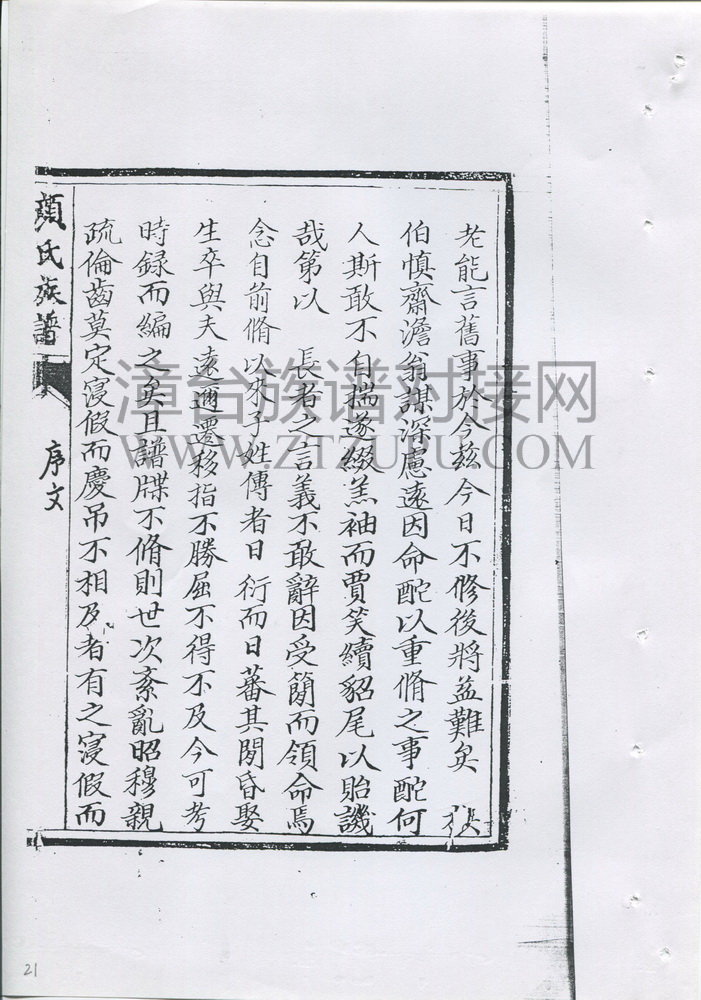 老能言舊事於今茲今日不修後將益難矣
伯慎齋澹翁謀深慮遠因命酡以重脩之事酡何
人斯敢不自揣遂綴羔袖而賈笑續貂尾以貽譏
哉第以 長者之言義不敢辭因受簡而領命焉
念自前脩以來子姓傳者日衍而日蕃其閒昏娶
生卒與夫遠邇遷移指不勝屈不得不及今可考
時録而編之矣且譜牒不脩則世次紊亂昭穆親
疏倫齒莫定寖假而慶吊不相及者有之寖假而
顏氏族譜
序文
漳台族谱对接网
WWW.ZTZUPU.COM
21